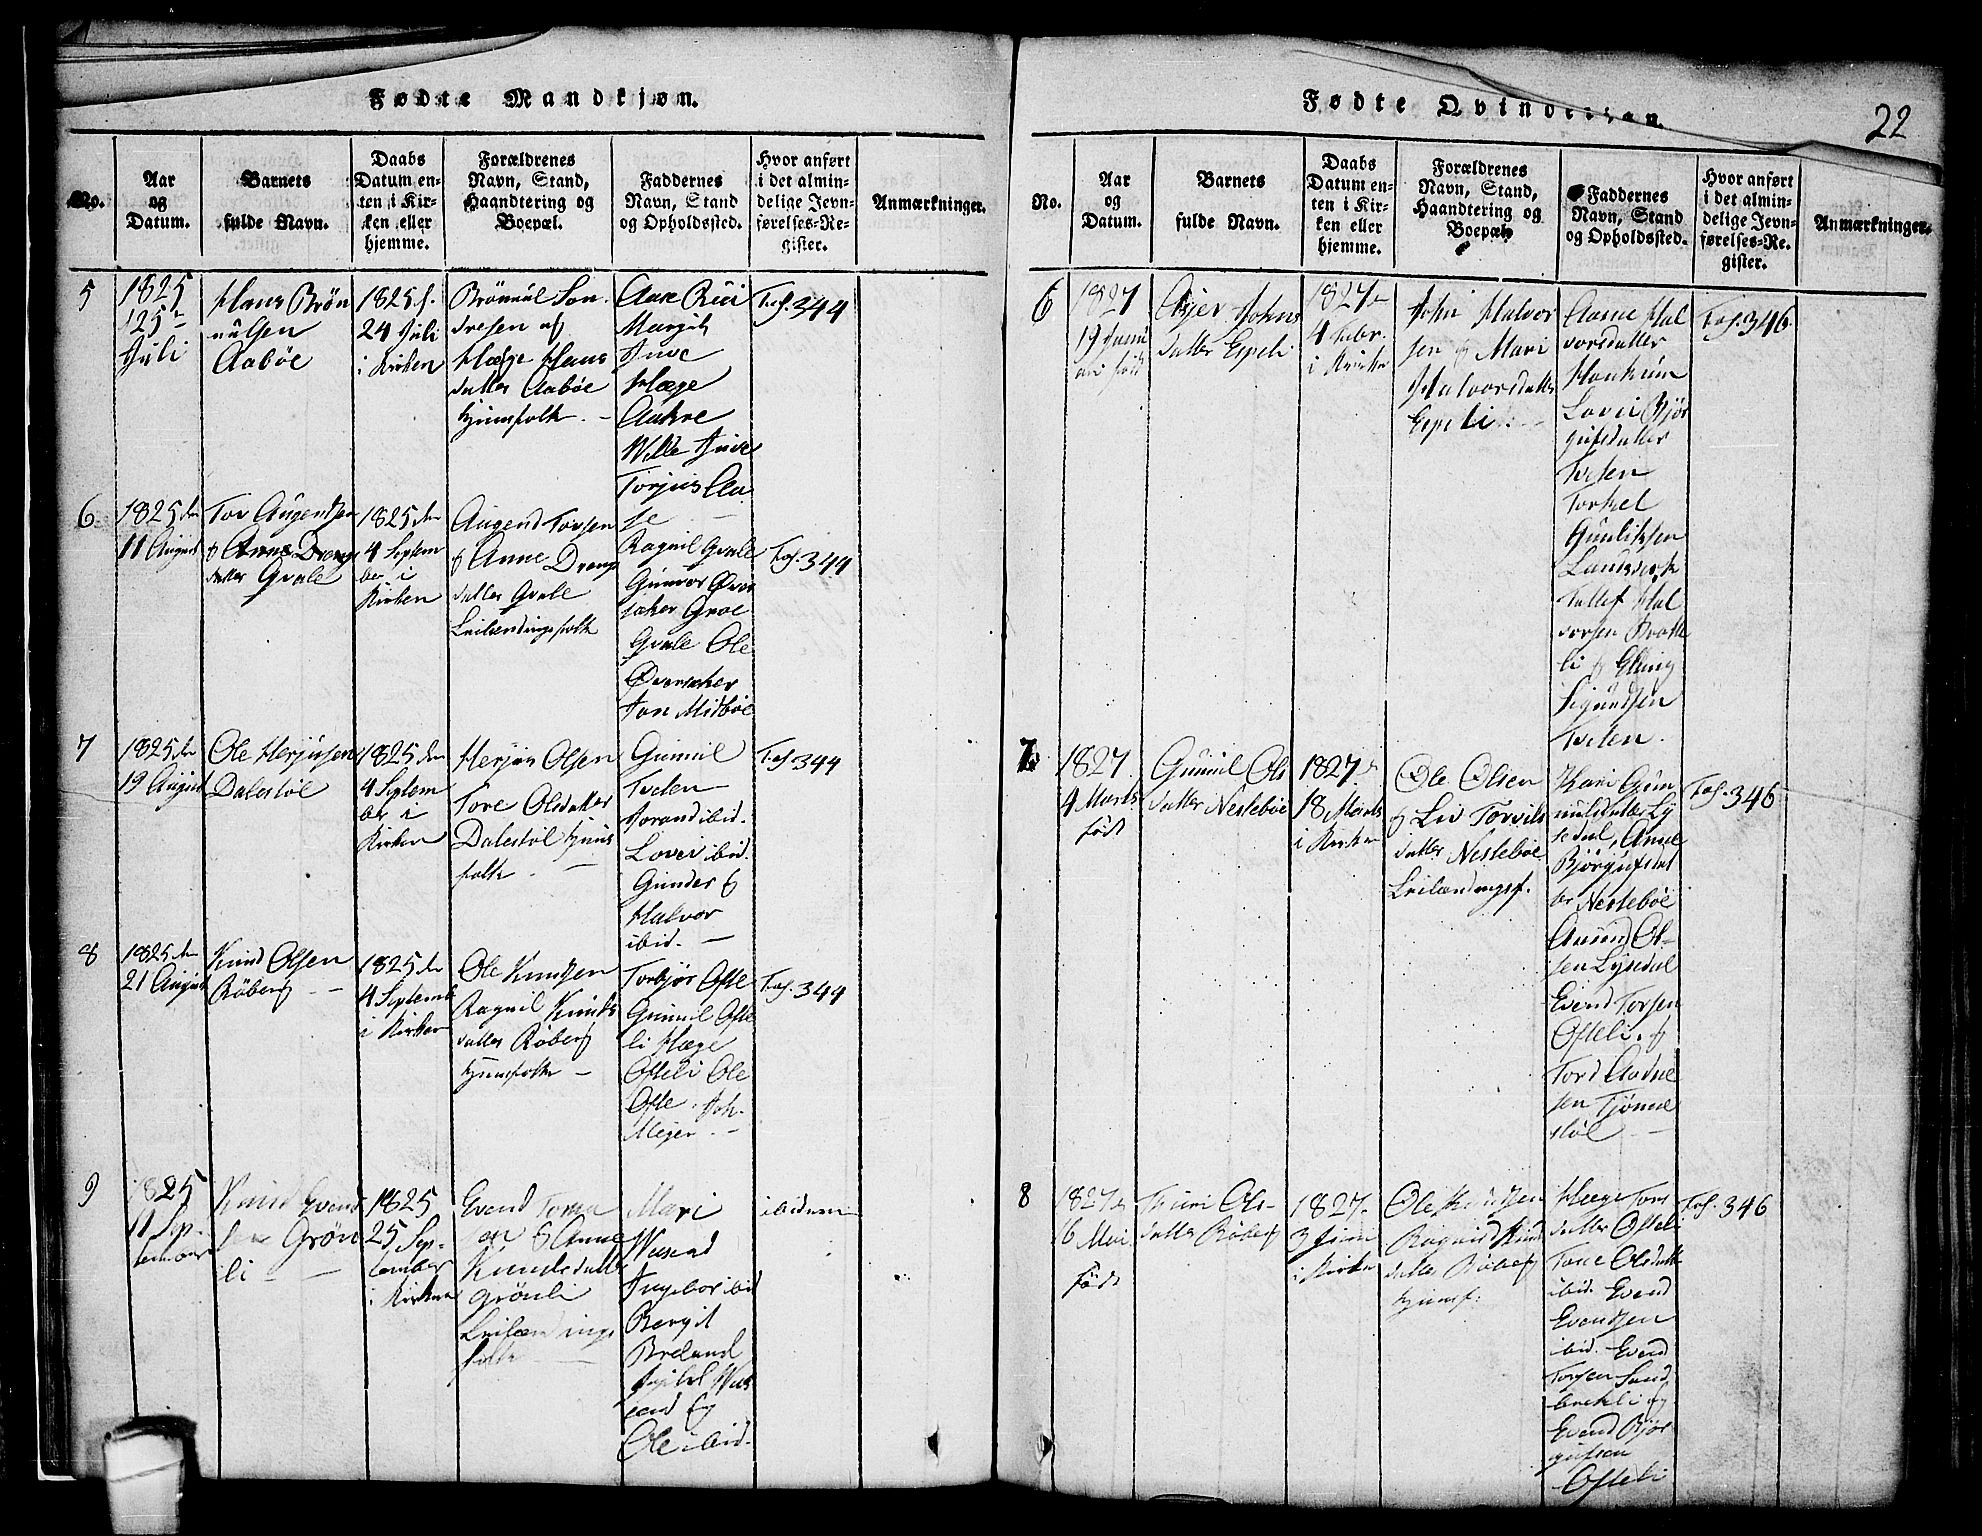 Fødte Mandkjøn.
No.
Aar
og
Datum.
Barnets
fulde Navn.
Daabs
Datum en-
ten i Kir-
ken eller
hjemme.
Forældrenes
Navn, Stand,
Haandtering og
Boepæl.
Faddernes
Navn, Stand
og Opholdssted.
Hvor anført
i det almin-
delige Jevn-
førelses-Re-
gister.
Anmærkninger.
5
1825
Juli
Hans Brön
nulsen
Aabøe
1825
24 Juli
i Kirken
Brönnul Son
dresen og
Hæge Hans
datter Aabøe
Huusfolk. -
Aase
Margit
Hæge
Torjus Aa
se
Fol. 344
6
1825 den
11 August
Tov Augendsen
& Anne Drengs
datter Qvale
1825 den
4 Septem
ber i
Kirken
Augend Tovsen
& Anne Dreng
datter Qvale
Leilændingsfolk
Ragnil Qvale
Gunvor Øver
saker Groe
Qvale Ole
Øversaker
Jon Midbøe
Fol. 344
7
1825 den
19 August
Ole Herjusen
Dalestöl
1825 den
4 Septem
ber i
Kirken
Herjus Olsen
Tore Olsdatter
Dalestöl Huus
folk. -
Gunnil
Tveten
Jorand ibid.
Lovei ibid.
Gunder &
Halvor
ibid. -
Fol. 344
8
1825 den
21 August
Knud Olsen
Röberg -
1825 den
4 Septemb
i Kirken
Ole Knudsen
Ragnil Knuds
datter Röberg
Huusfolk -
Torbjør Ofte
Gunnil Ofte
li Hæge
Ofteli Ole
Ofte. Joh.
Mejer. -
Fol. 344
9
1825
11 Sep-
tember
Knud Evend
sen Grön
li - -
1825
25 Sep-
tember
i Kirken
Evend Torsen
& Anne
Knudsdatter
Grönli
Leilændings
folk -
Mari
Ingebor ibid
Bergit
Breland
Ole ibid.
ibidem
Fødte Qvindekjøn.
22
No.
Aar
og
Datum.
Barnets
fulde Navn.
Daabs
Datum en-
ten i Kir-
ken eller
hjemme.
Forældrenes
Navn, Stand,
Haandtering og
Boepæl
Faddernes
Navn, Stand
og Opholdssted.
Hvor anført
i det almin-
delige Jevn-
førelses-Re-
gister.
Anmærkninger.
6
1827
19 Janu
ari født
Johns
datter Espeli
1827
4 Febr.
i Kirken
John Halvor
sen & Mari
Halvorsdatter
Espeli
Aasne Hal
vorsdatter
Haukum
Lovei Bjør
gufsdatter
Tveten
Torkel
Gunliksen
Landsverk
Tallef Hal
vorsen Bratte
li & Elling
Sigurdsen
Tveten.
Fol. 346
7.
1827.
4 Marts
født
Gunnil Ols
datter Nestebøe
1827
18 Marts
i Kirken
Ole Olsen
& Liv Torvils
datter Nestebøe
Leilændingsf.
Kari Gun
nulsdatter Ly
sedal, Anne
Bjørgufsdat
ter Nestebøe
Ol-
sen Lysedal
Evend Torsen
Ofteli. &
Tord Aadne
sen Tjönne
støl -
Fol. 346
8
1827
6 Mai
født
Thuri Ols-
datter Röberg
1827.
3 Juni
i Kirken
Ole Knudsen
Ragnild Knud
datter Röberg
Huusf.
Hæge Tors
datter Ofteli
Tone Olsdatter
ibid. Evend
Evendsen
ibid. Evend
Torsen Sand
brekli og
Evend Bjør
gufsen
Ofteli
Fol. 346